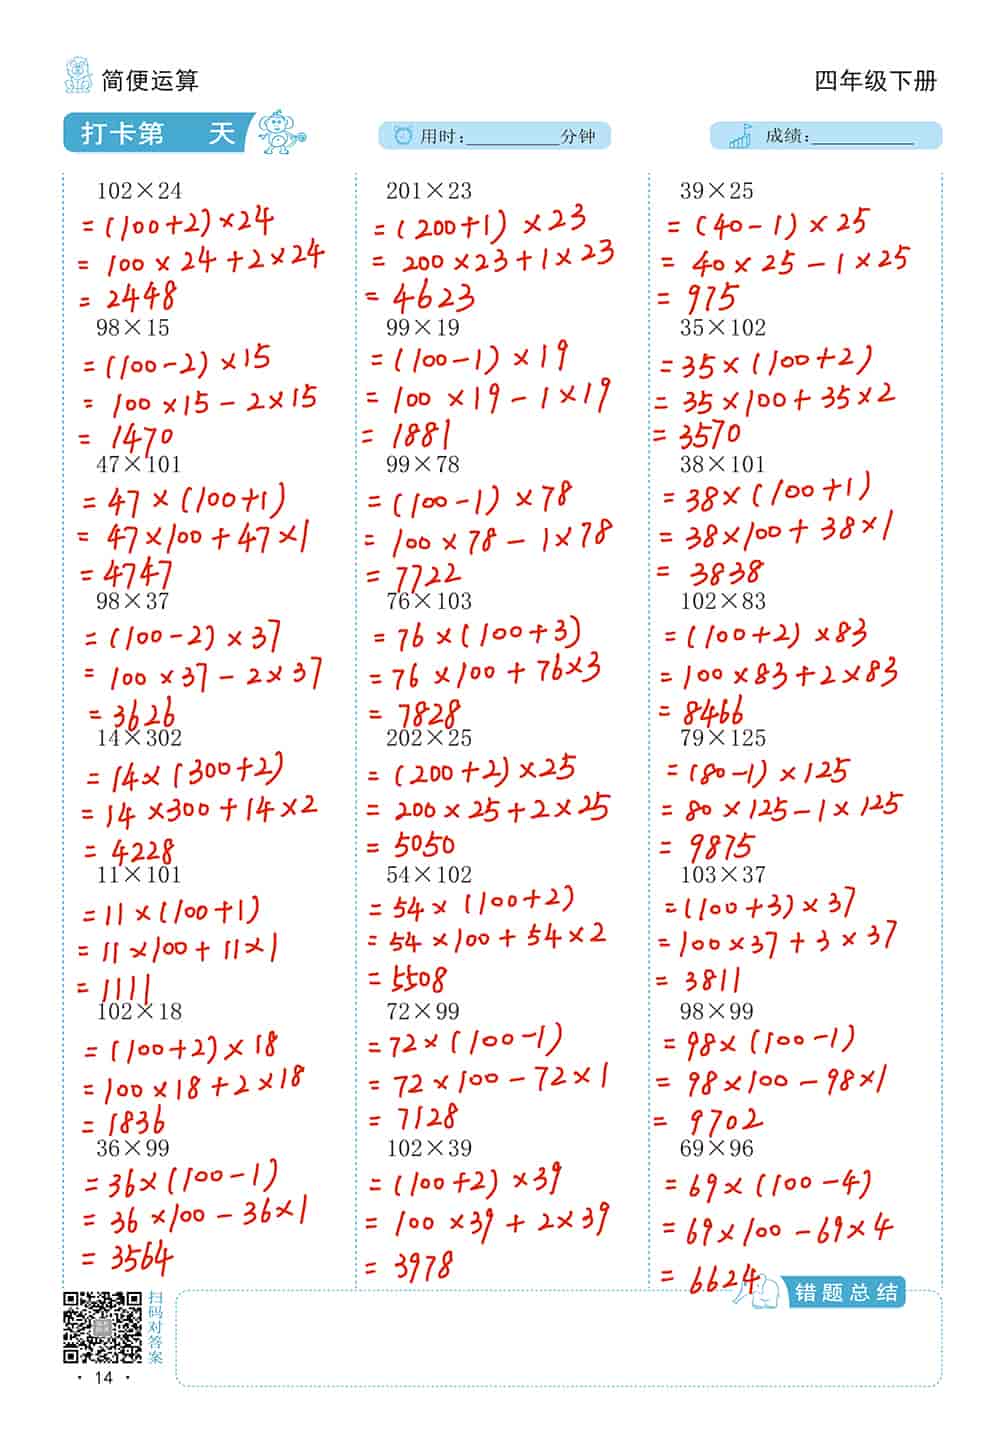 简便运算
四年级下册
打卡第 天
用时：__________分钟
成绩：___________
102×24
=(100+2)×24
=100×24+2×24
=2448
98×15
=(100-2)×15
=100×15-2×15
=1470
47×101
=47×(100+1)
=47×100+47×1
=4747
98×37
=(100-2)×37
=100×37-2×37
=3626
14×302
=14×(300+2)
=14×300+14×2
=4228
11×101
=11×(100+1)
=11×100+11×1
=1111
102×18
=(100+2)×18
=100×18+2×18
=1836
36×99
=36×(100-1)
=36×100-36×1
=3564
201×23
=(200+1)×23
=200×23+1×23
=4623
99×19
=(100-1)×19
=100×19-1×19
=1881
99×78
=(100-1)×78
=100×78-1×78
=7722
76×103
=76×(100+3)
=76×100+76×3
=7828
202×25
=(200+2)×25
=200×25+2×25
=5050
54×102
=54×(100+2)
=54×100+54×2
=5508
72×99
=72×(100-1)
=72×100-72×1
=7128
102×39
=(100+2)×39
=100×39+2×39
=3978
39×25
=(40-1)×25
=40×25-1×25
=975
35×102
=35×(100+2)
=35×100+35×2
=3570
38×101
=38×(100+1)
=38×100+38×1
=3838
102×83
=(100+2)×83
=100×83+2×83
=8466
79×125
=(80-1)×125
=80×125-1×125
=9875
103×37
=(100+3)×37
=100×37+3×37
=3811
98×99
=98×(100-1)
=98×100-98×1
=9702
69×96
=69×(100-4)
=69×100-69×4
=6624
错题总结
扫码对答案
·14·